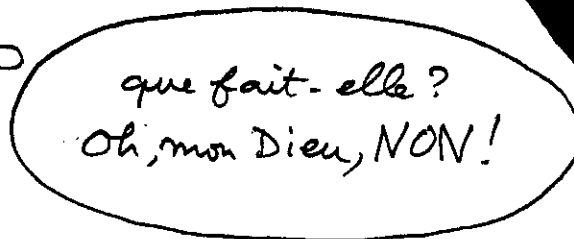 que fait-elle?
Oh, mon Dieu, NON!